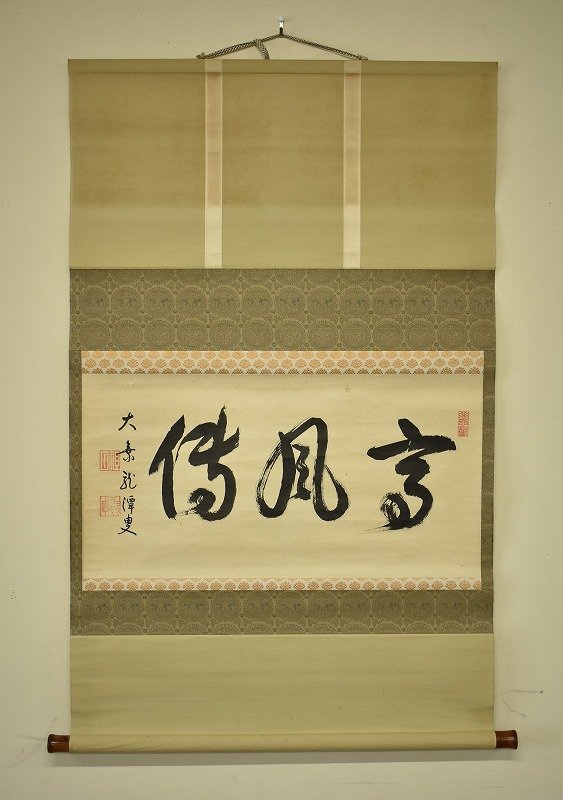 高風傳
大乗龍潭叟